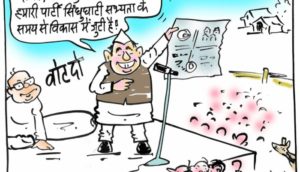 हमारी पार्टी सिंधुघाटी सभ्यता के
समय से विकास में जुटी है!
वोट दो